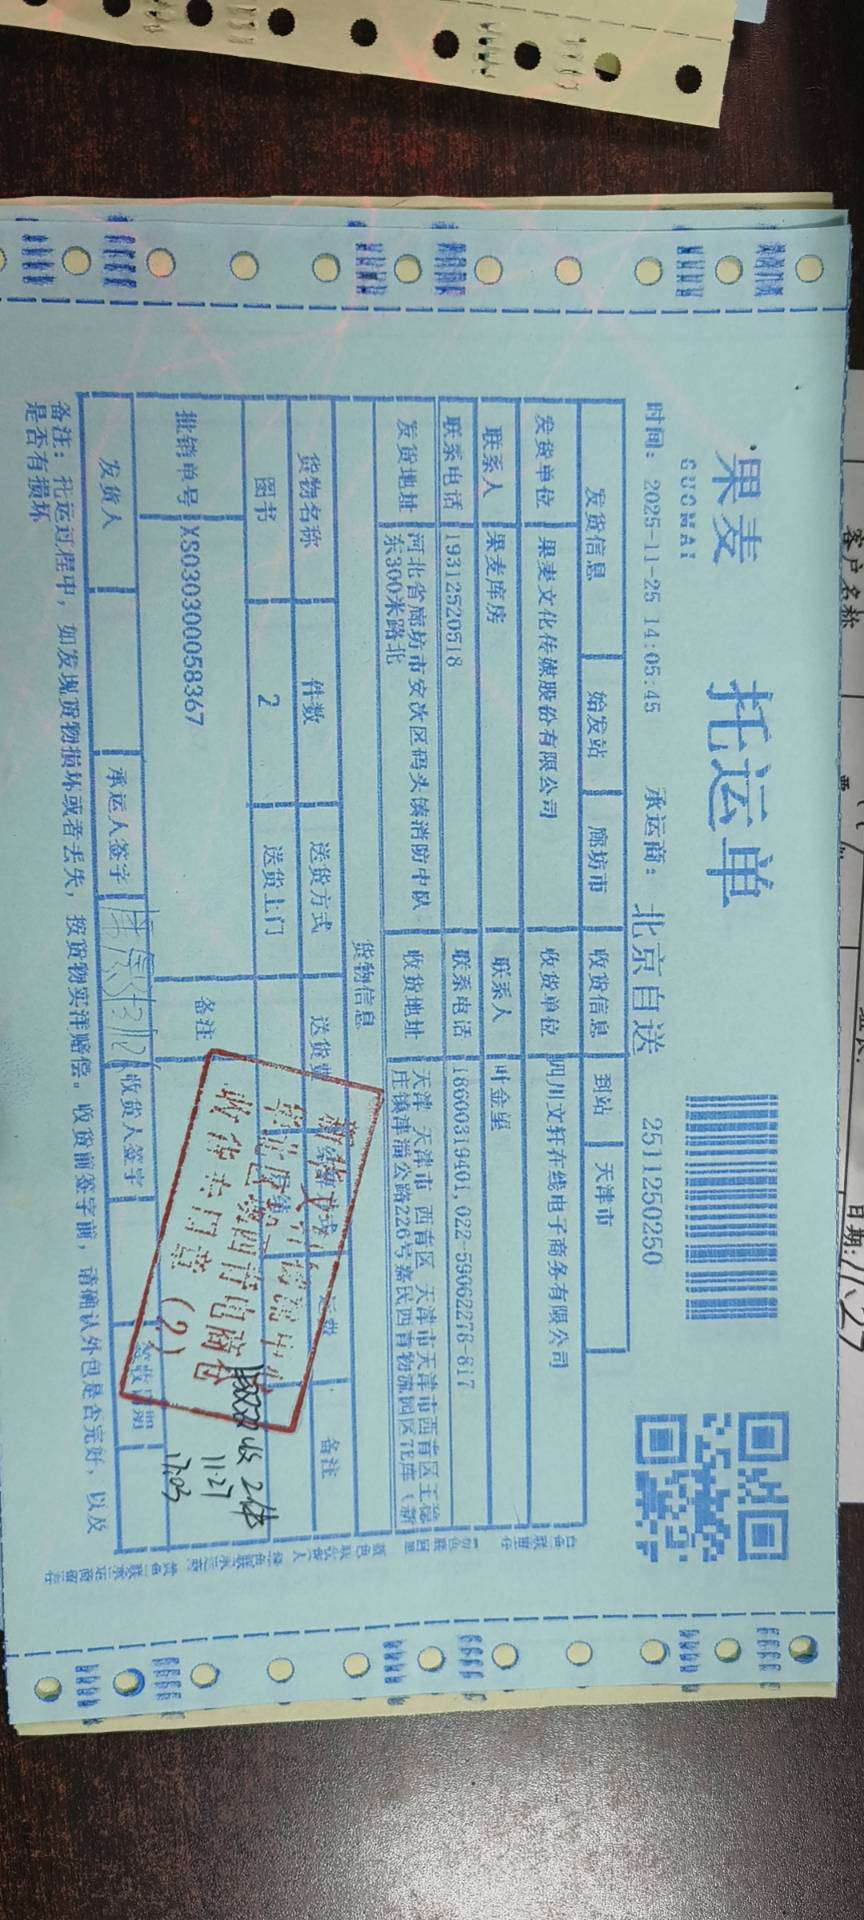 果麦
GUOMAI
托运单
时间: 2025-11-25 14:05:45 承运商: 北京自送 2511250250
发货信息 始发站 廊坊市 收货信息 到站 天津市
发货单位 果麦文化传媒股份有限公司 收货单位 四川文轩在线电子商务有限公司
联系人 果麦库房 联系人 叶金星
联系电话 19312520518 联系电话 18600319401,022-59062278-817
发货地址 河北省廊坊市安次区码头镇消防中队
东300米路北
收货地址 天津 天津市 西青区 天津市天津市西青区王稳
庄镇津淄公路226号嘉民西青物流园区 库(新
货物信息
货物名称 件数 送货方式 送货费 运费 备注
图书 2 送货上门
批销单号 XS030300058367 备注
收2件
11.27
17.03
收货专用章
(2)
发货人 承运人签字 收货人签字 签收日期
备注: 托运过程中, 如发现货物损坏或者丢失, 按货物实洋赔偿。收货前签字前, 请确认外包是否完好, 以及
是否有损坏
客户名称
日期: 11.27